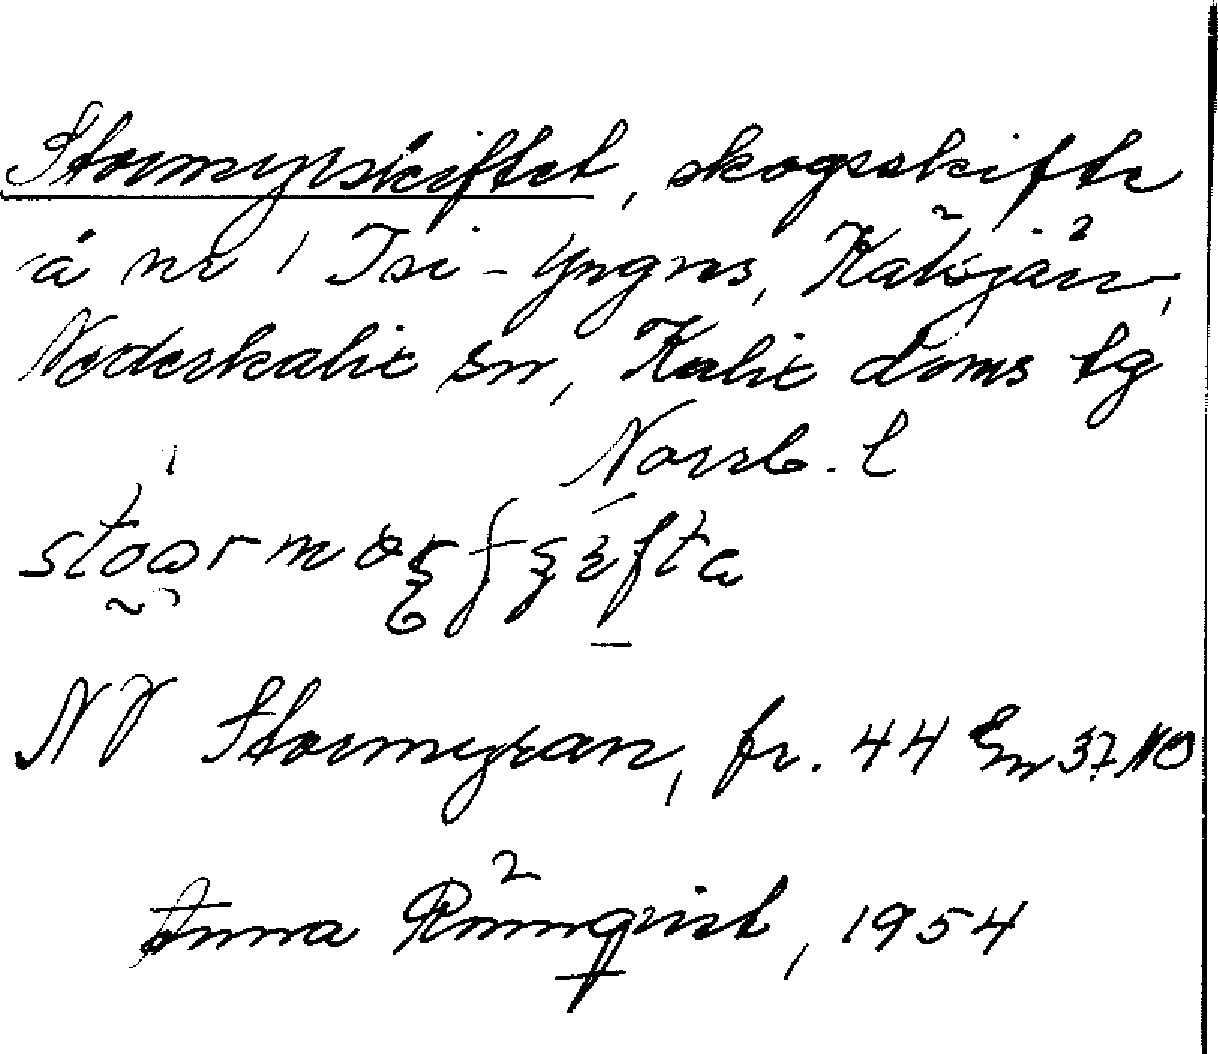 Stormyrskiftet, skogsskifte
å nr 1 Isi-Yrgns, Kälsjärv,
Nederkalix sn, Kalix doms tg
Norrb. l
NV Stormyran, fr. 44 37 NO
Anna Rönnqvist, 1954